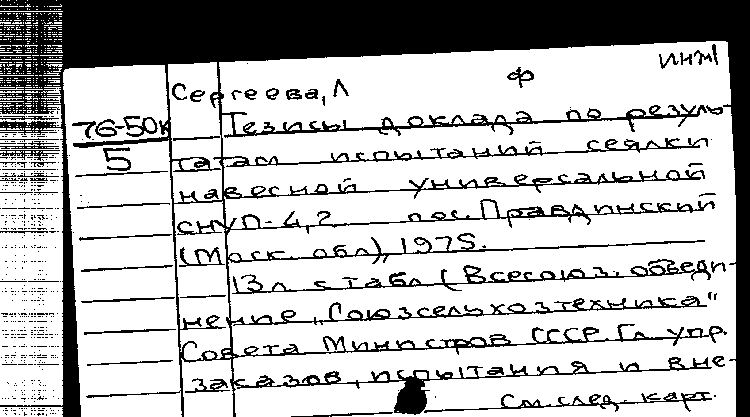 инж
ф
Сергеева, Л
76-50к
5
Тезисы доклада по резуль-
татам испытаний сеялки
навесной универсальной
СНУП-4,2 пос. Правдинский
(Моск. обл), 1975.
13 л с табл (Всесоюз. объеди-
нение „Союзсельхозтехника"
Совета Министров СССР. Гл упр.
заказов, испытания и вне-
См. след. карт.